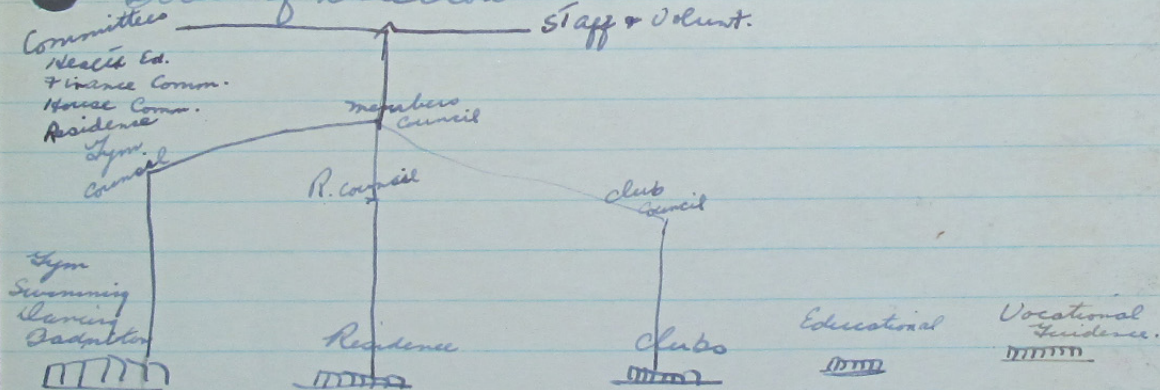 Committees
Staff & Volunt.
Health Ed.
Finance Comm.
House Comm.
Residence
members
Council
Gym.
Council
R. Council
Club
Council
Gym
Swimming
Dancing
Badminton
Residence
Clubs
Educational
Vocational
Guidence.